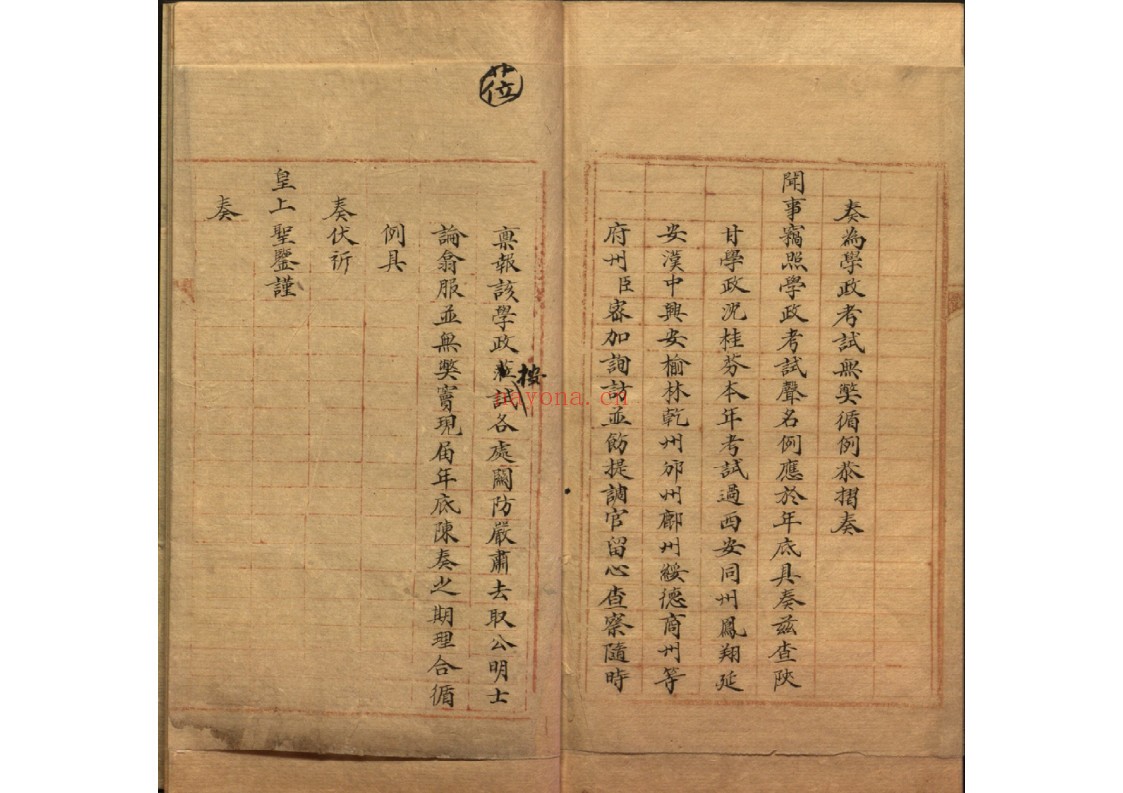 奏為學政考試無獘循例恭摺奏
聞事竊照學政考試聲名例應於年底具奏茲查陝
甘學政沈桂芬本年考試過西安同州鳳翔延
安漢中興安榆林乾州邠州鄜州綏德商州等
府州臣密加詢訪並飭提調官留心查察隨時
稟報該學政按試各處關防嚴肅去取公明士
論翕服並無獘竇現屆年底陳奏之期理合循
例具
奏伏祈
皇上聖鑒謹
奏
nayona.cn